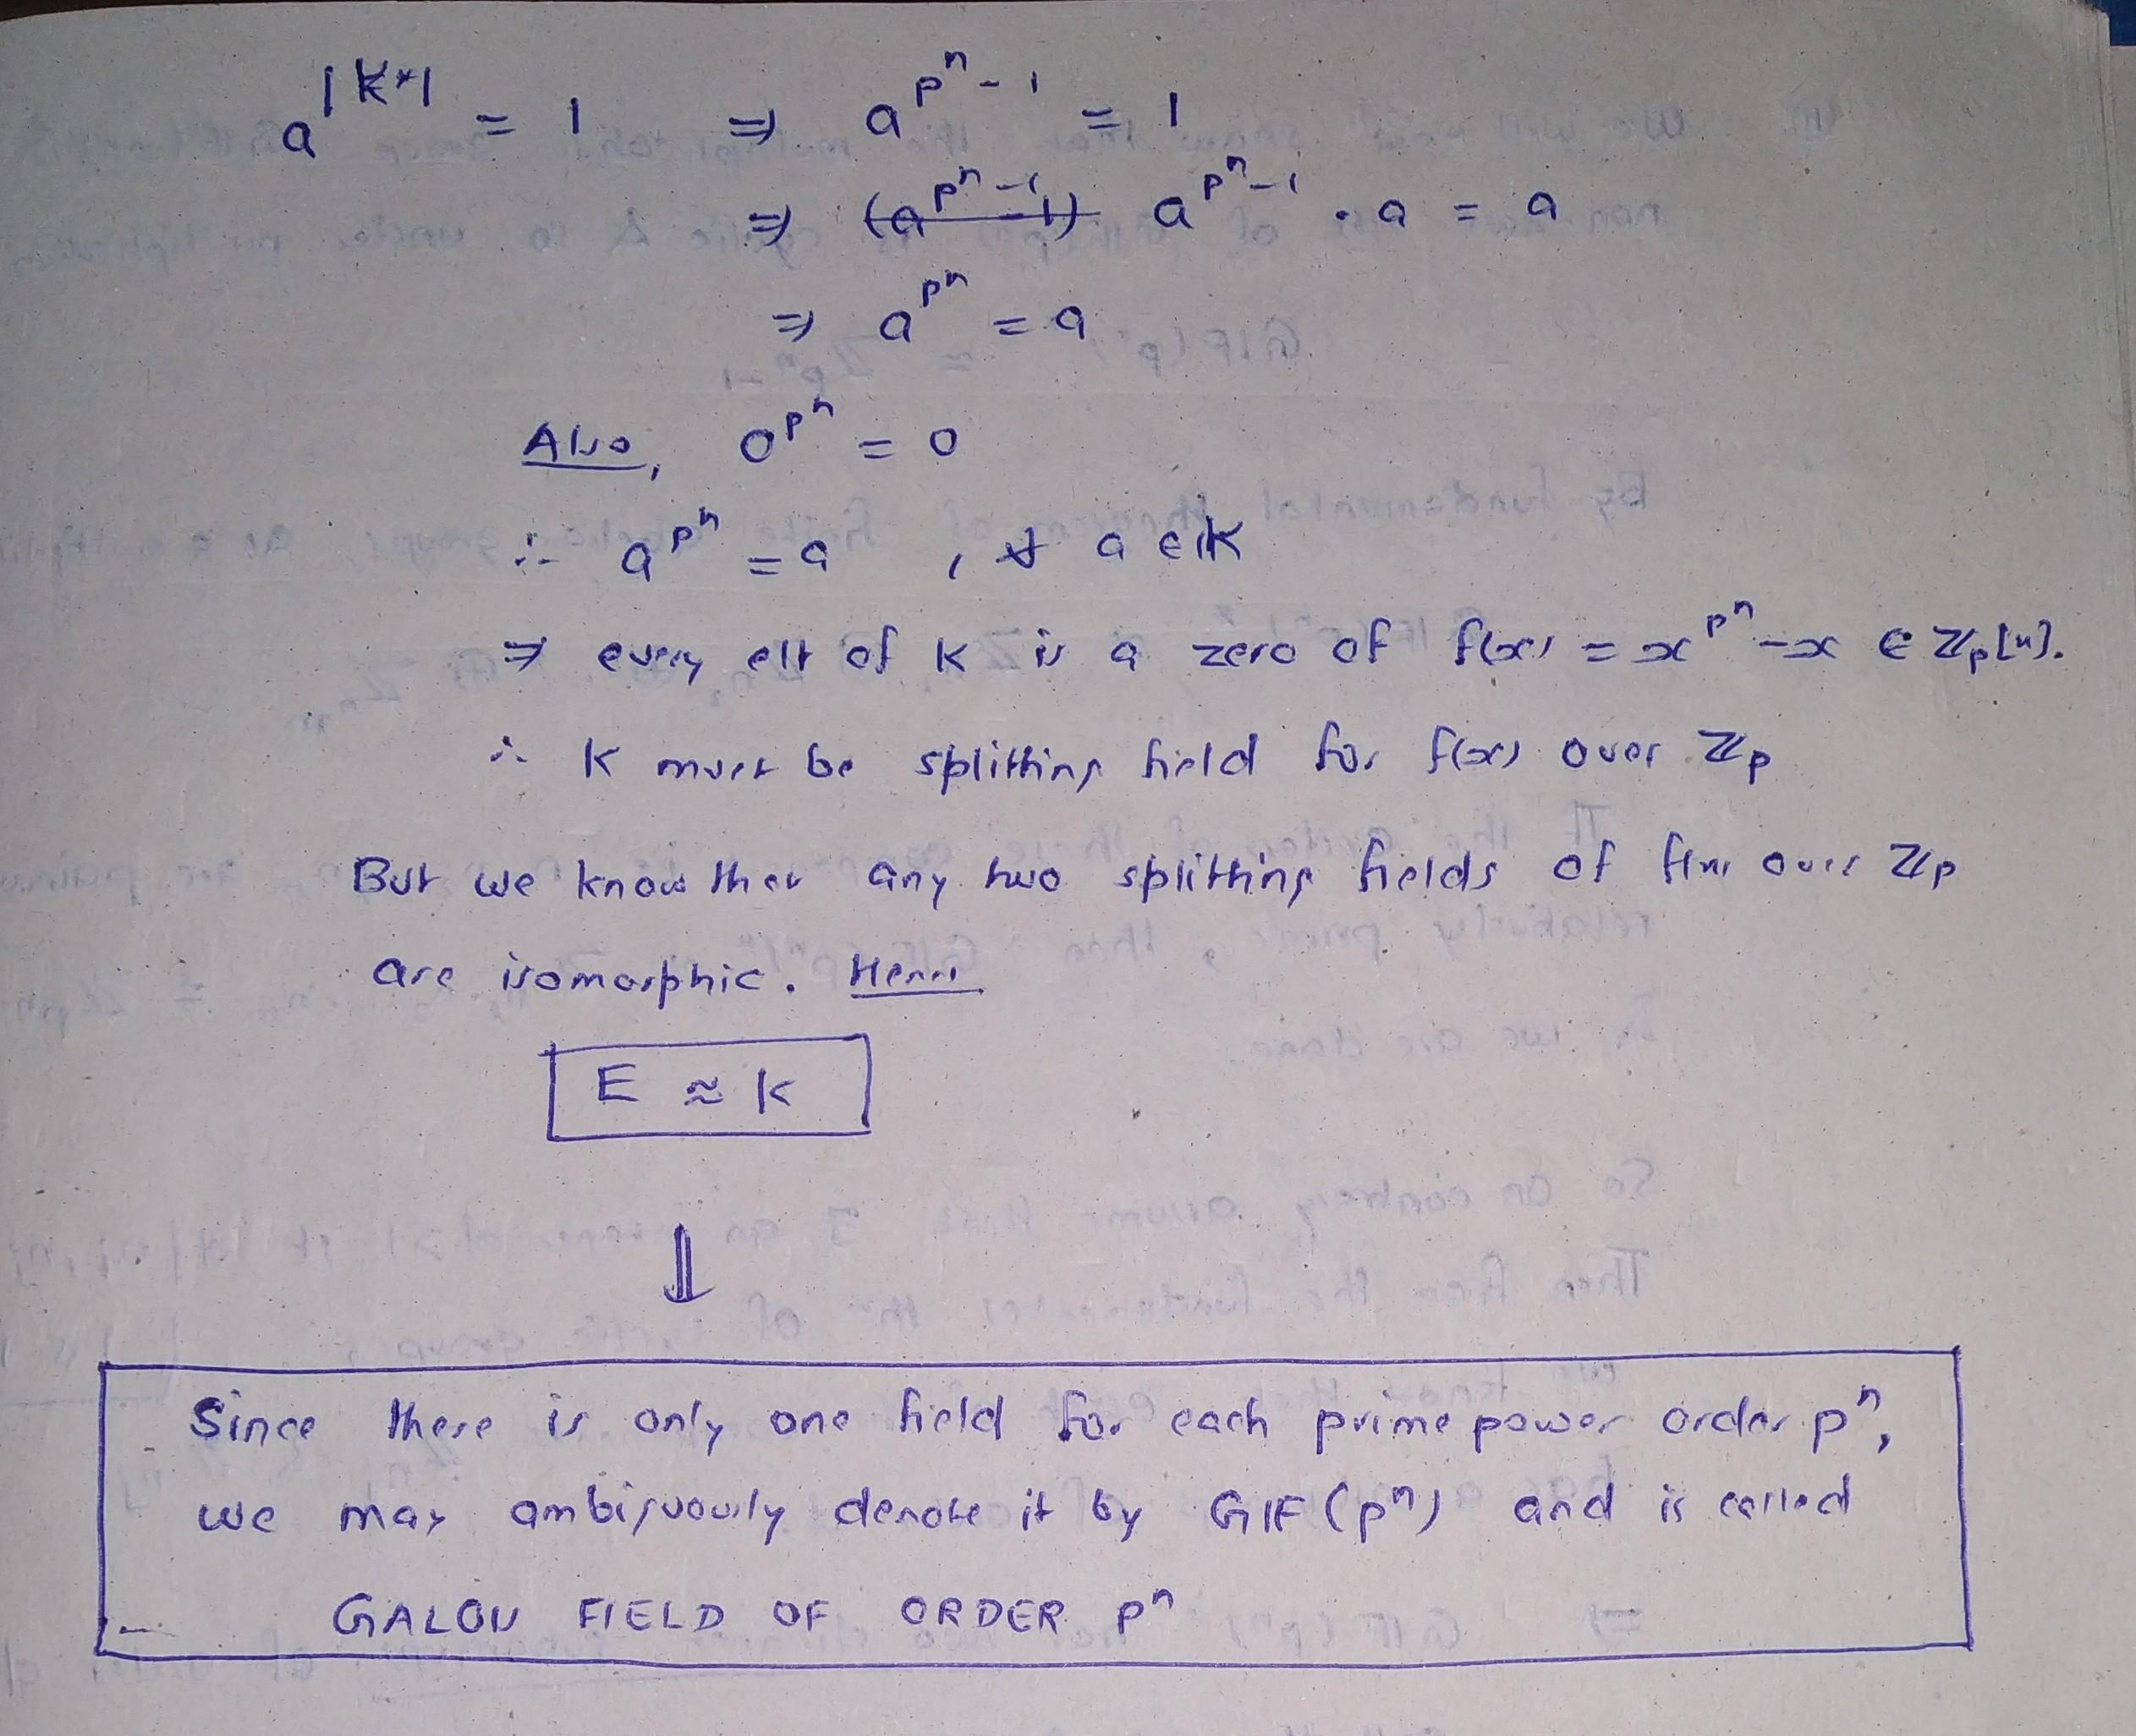 a^{|K*|} = 1 ⇒ a^{p^n - 1} = 1
⇒ (a^{p^n - 1} - 1) a^{p^n - 1} . a = a
⇒ a^{p^n} = a
Also, 0^{p^n} = 0
∴ a^{p^n} = a , ∀ a ∈ K
⇒ every elt of K is a zero of f(x) = x^{p^n} - x ∈ ℤp[x].
∴ K must be splitting field for f(x) over ℤp
But we know that any two splitting fields of f(x) over ℤp
are isomorphic. Hence
E ≈ K
⇓
Since there is only one field for each prime power order p^n,
we may ambiguously denote it by GF(p^n) and is called
GALOIS FIELD OF ORDER p^n